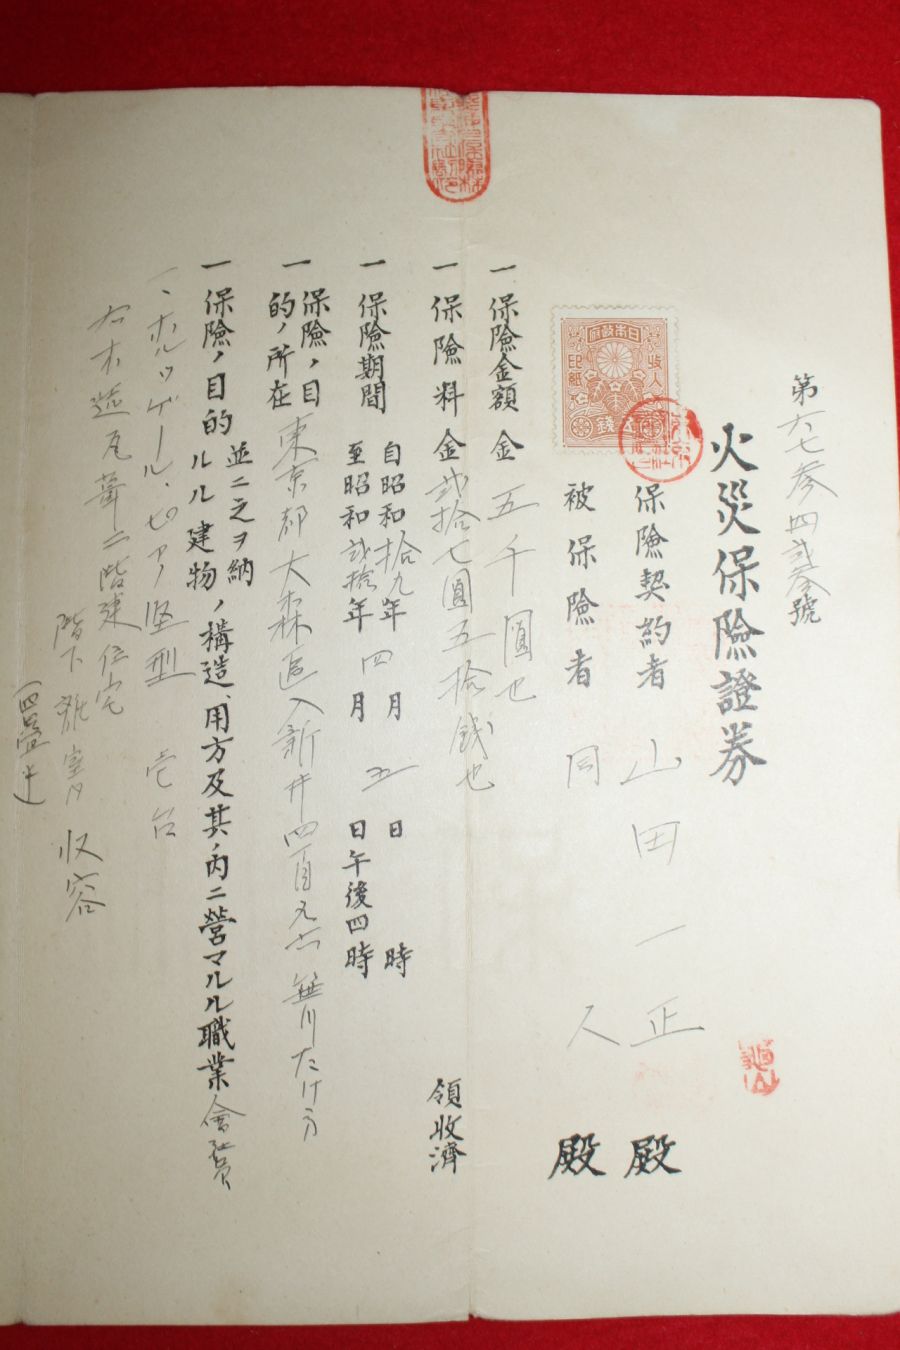 第六七参四弐参號
火災保險證券
保險契約者 山田一正 殿
被保險者 同人 殿
日本政府
収入印紙
五銭
一保險金額 金五千圓也
一保險料 金弐拾七圓五拾銭也 領收濟
一保險期間 自昭和拾九年四月五日 時
至昭和弐拾年 月 日午後四時
一保險ノ目的ノ所在 東京都大森區入新井四ノ 川たけ方
一保險ノ目的並ニ之ヲ納ルル建物ノ構造、用方及其ノ内ニ營マルル職業 會社員
一、ホルツゲール、ピアノ 竪型 壱台
右木造瓦葺二階建住宅
階下 室内 収容
(四疊半)